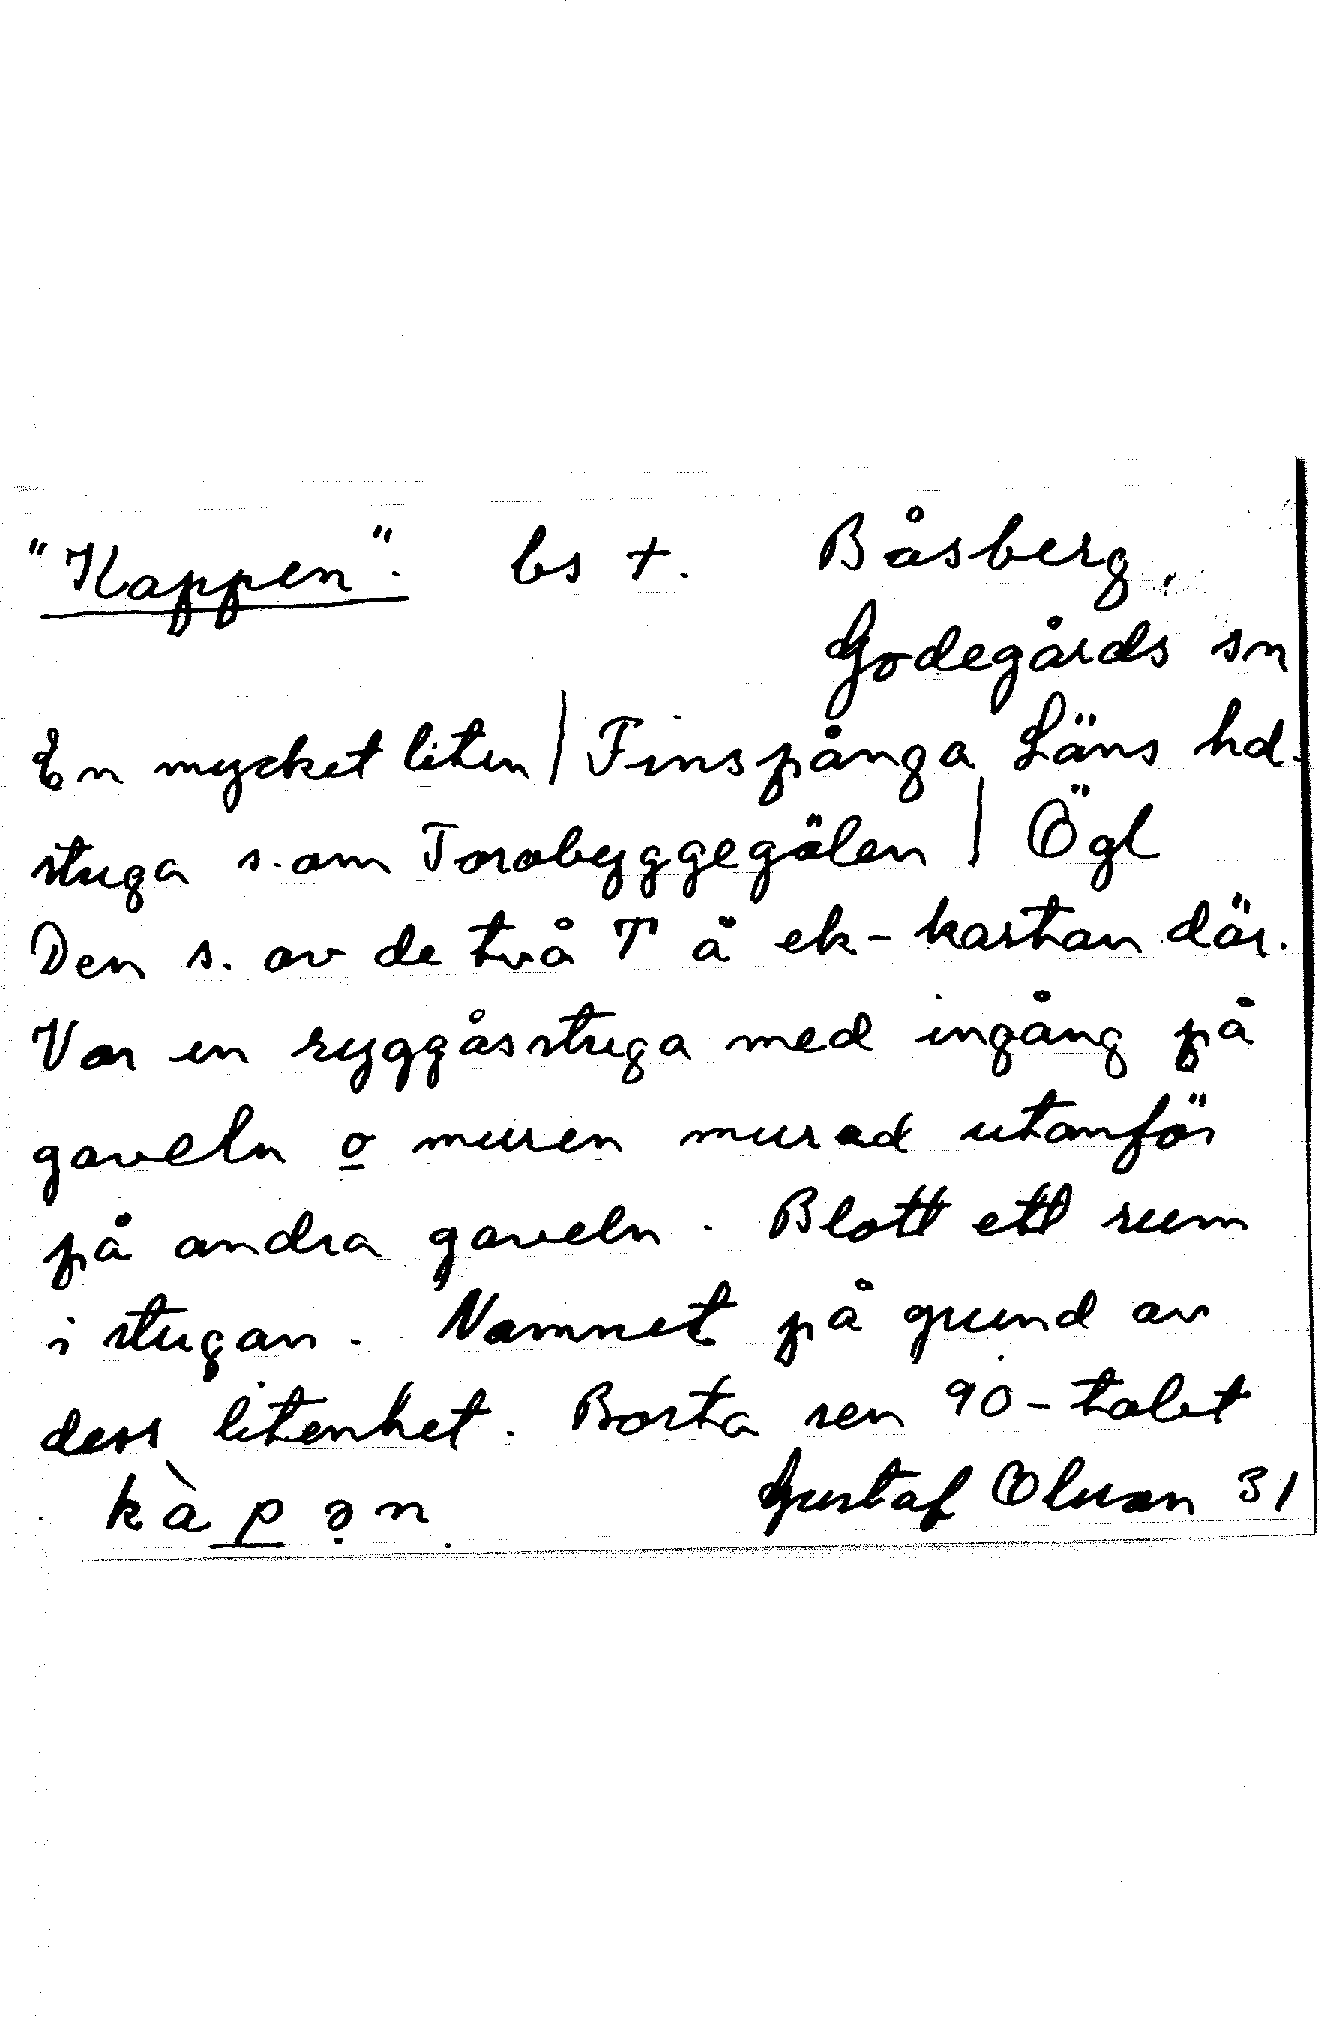 "Kappen". bs +. Båsberg,
Godegårds sn
En mycket liten / Finspånga Läns hd.
stuga s. om Torobyggegölen / Ögl
Den s. av de två T å ek-kartan där.
Var en ryggåsstuga med ingång på
gaveln o muren murad utanför
på andra gaveln. Blott ett rum
i stugan. Namnet på grund av
dess litenhet. Borta sen 90-talet
kàpən. Gustaf Olsson 31